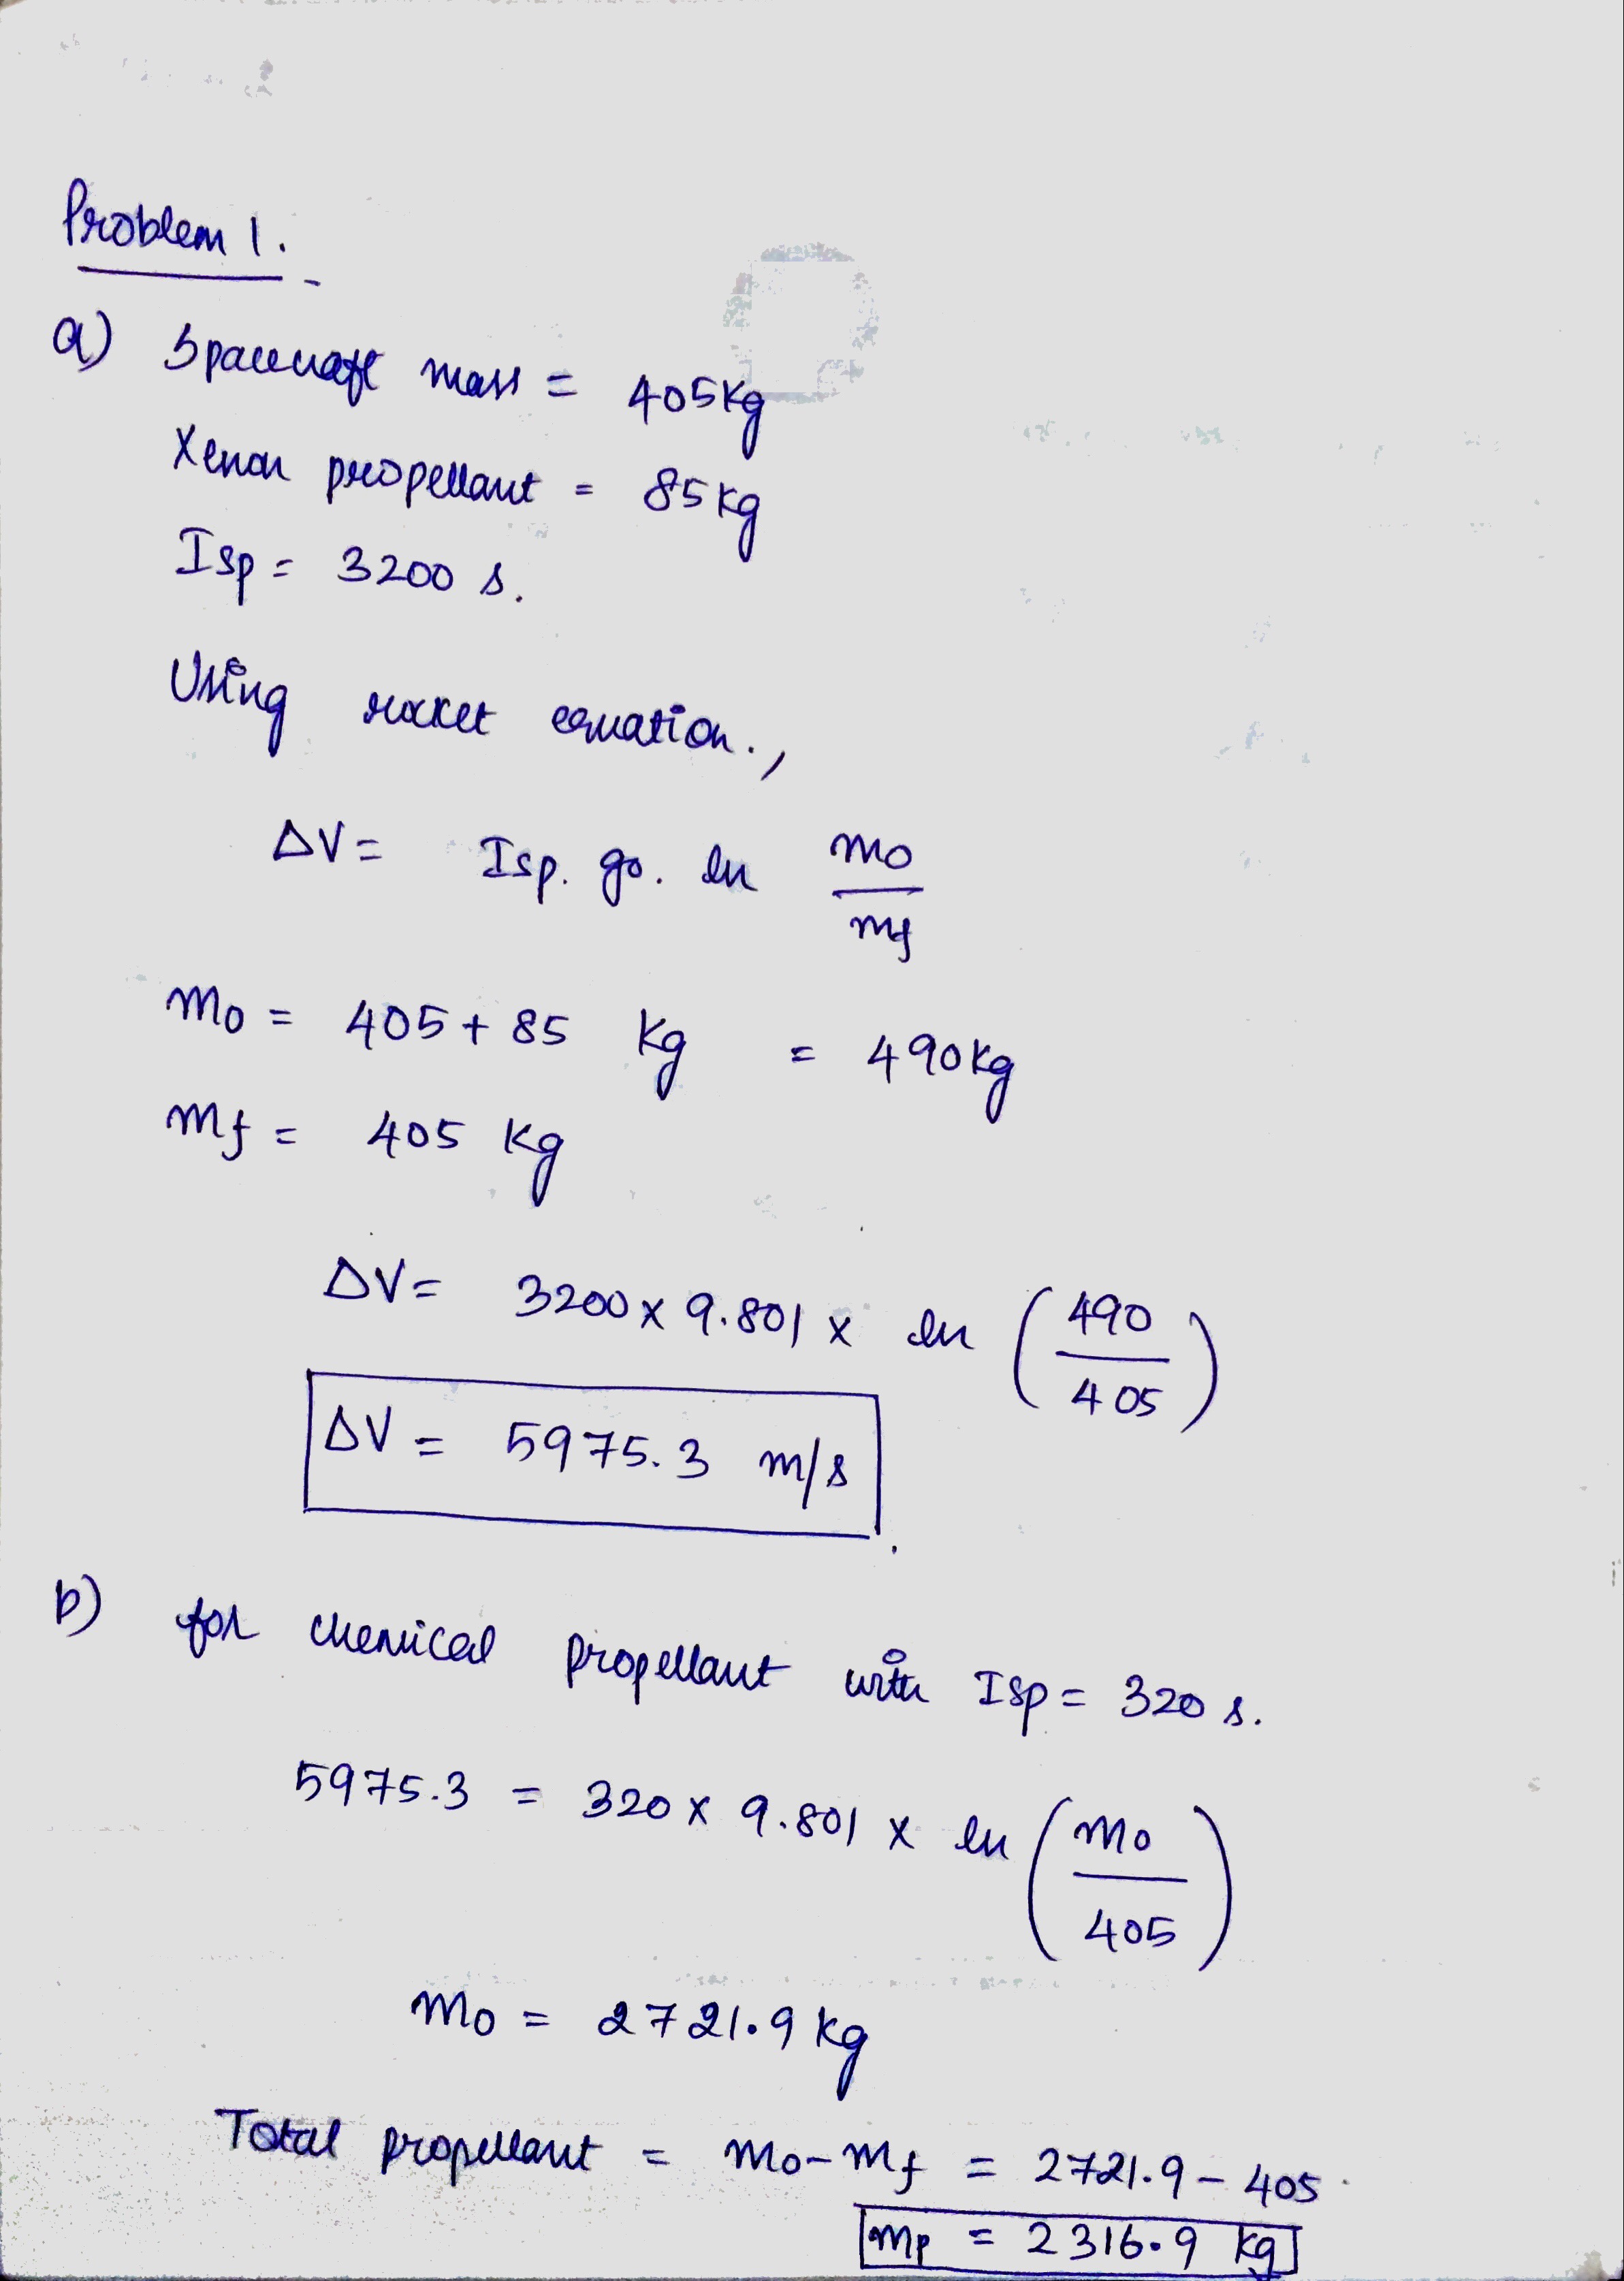 Problem 1.
a) Spacecraft mass = 405kg
Xenon propellant = 85kg
Isp = 3200 s.
Using rocket equation.,
ΔV = Isp. go. ln mo/mf
mo = 405 + 85 kg = 490kg
mf = 405 kg
ΔV = 3200 x 9.801 x ln (490/405)
ΔV = 5975.3 m/s
b) for chemical propellant with Isp = 320 s.
5975.3 = 320 x 9.801 x ln (mo/405)
mo = 2721.9 kg
Total propellant = mo - mf = 2721.9 - 405
mp = 2316.9 kg